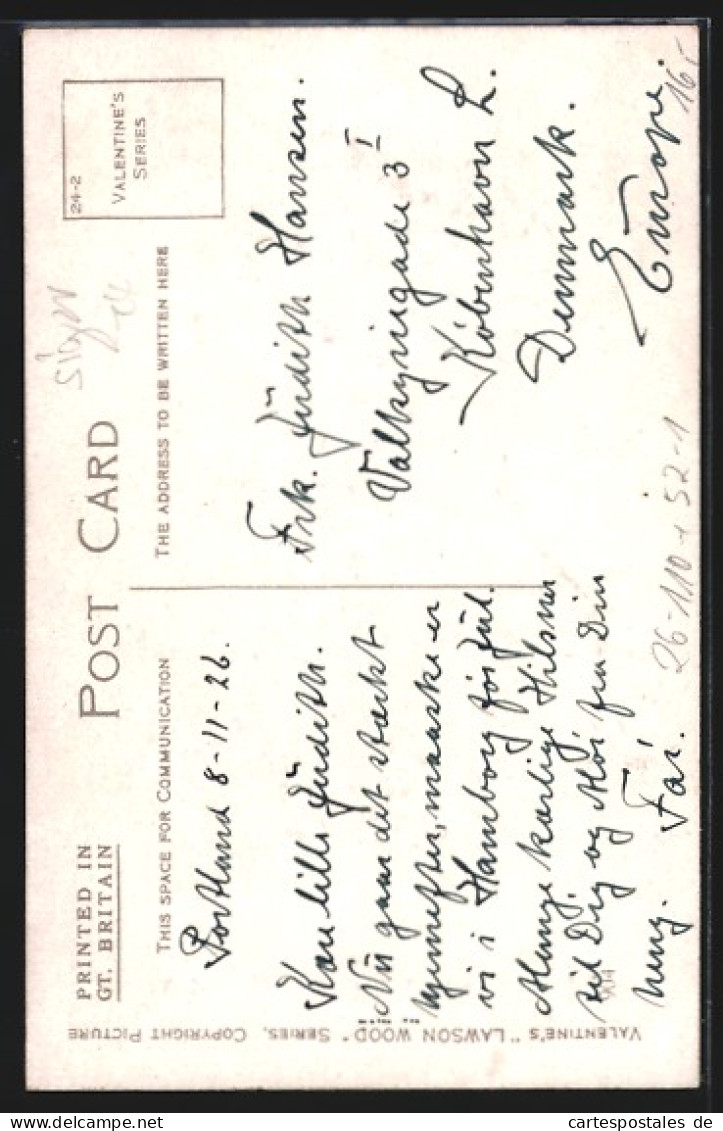 PRINTED IN
GT. BRITAIN
POST CARD
24-2
VALENTINE'S
SERIES
THIS SPACE FOR COMMUNICATION
THE ADDRESS TO BE WRITTEN HERE
Portland 8-11-26.
Kære lille Judith.
Nu gaar det stærkt
hjemefter, maaske er
vi i Hamborg før Jul.
Mange kærlige Hilsner
til Dig og Moi fra Din
heng. Fai.
Frk. Judith Hansen.
Valkyriegade 3 I
København L.
Denmark.
Europe.
16,-
26-110 + 52-1
VALENTINE'S "LAWSON WOOD" SERIES, COPYRIGHT PICTURE
cartespostales de